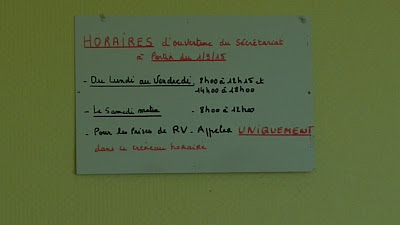 HORAIRES d'ouverture du Secrétariat
à Partir du 1/9/15
- Du Lundi au Vendredi, 8h00 à 12h15 et
14h00 à 18h00
- Le Samedi matin - 8h00 à 12h00
- Pour les Prises de RV - Appeler UNIQUEMENT
dans le créneau horaire